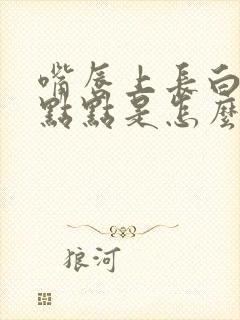 嘴唇上長白
點點是怎麼
狼河